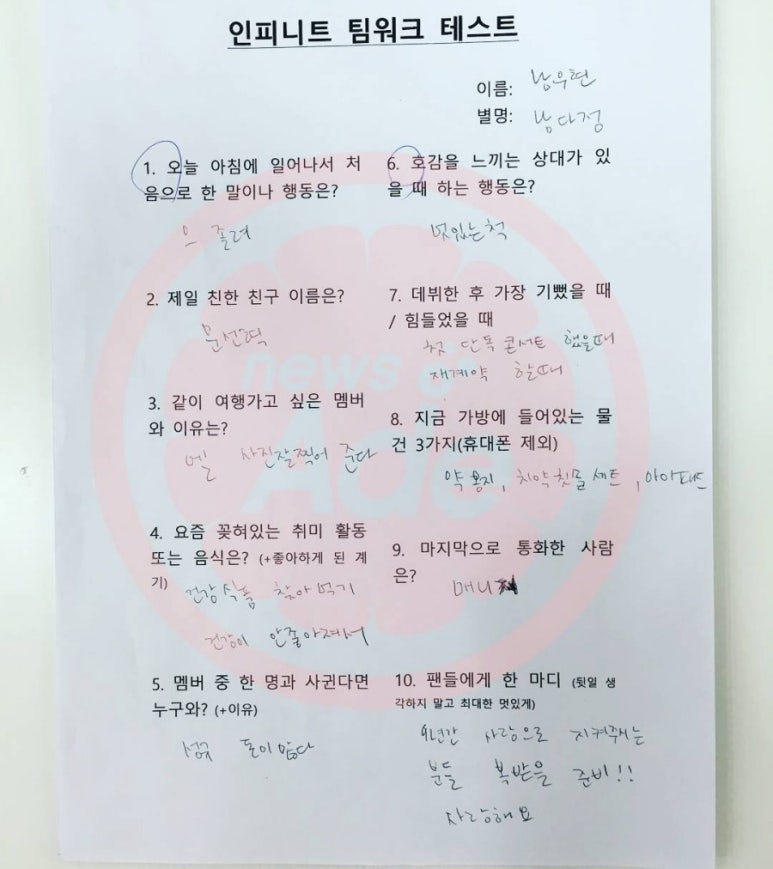 인피니트 팀워크 테스트
이름: 남우현
별명: 남다정
1. 오늘 아침에 일어나서 처
음으로 한 말이나 행동은?
으 졸려
2. 제일 친한 친구 이름은?
문선혁
3. 같이 여행가고 싶은 멤버
와 이유는?
엘 사진잘찍어 준다
4. 요즘 꽂혀있는 취미 활동
또는 음식은? (+좋아하게 된 계
기)
건강식품 찾아먹기
건강이 안좋아져서
5. 멤버 중 한 명과 사귄다면
누구와? (+이유)
성규 돈이많다
6. 호감을 느끼는 상대가 있
을 때 하는 행동은?
멋있는척
7. 데뷔한 후 가장 기뻤을 때
/ 힘들었을 때
첫 단독콘서트 했을때
재계약 할때
8. 지금 가방에 들어있는 물
건 3가지(휴대폰 제외)
약봉지, 치약칫솔세트, 아이패드
9. 마지막으로 통화한 사람
은?
매니저
10. 팬들에게 한 마디 (뒷일 생
각하지 말고 최대한 멋있게)
9년간 사랑으로 지켜주시는
분들 복받을 준비!!
사랑해요
news
Ade